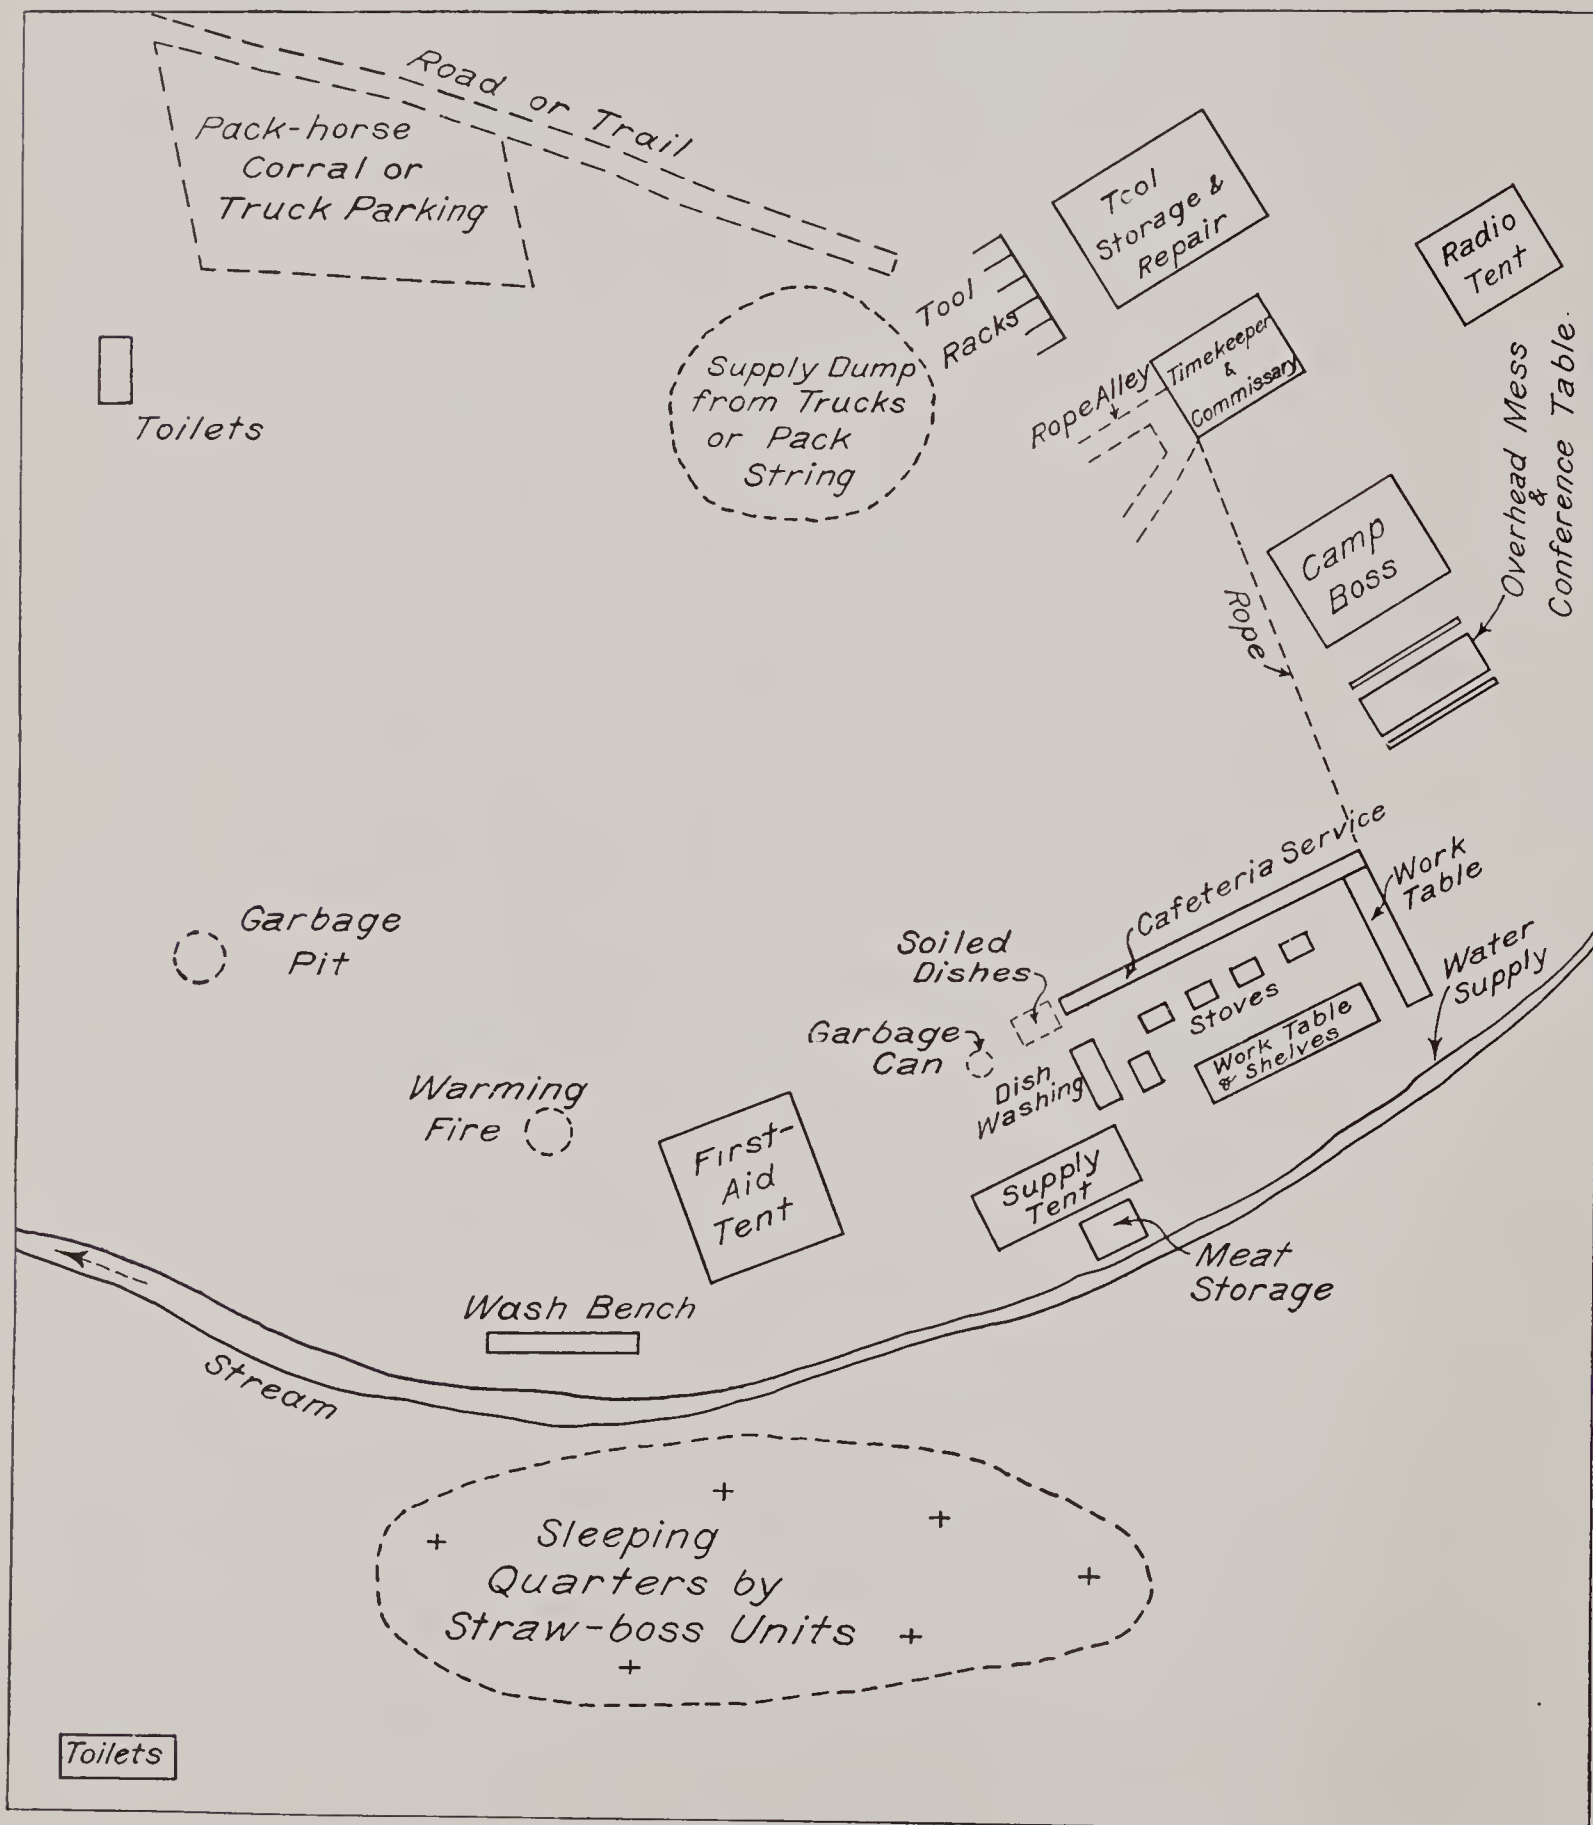 Road or Trail
Pack-horse
Corral or
Truck Parking
Tool
Storage &
Repair
Radio
Tent
Tool
Racks
Timekeeper
&
Commissary
Rope Alley
Supply Dump
from Trucks
or Pack
String
Toilets
Overhead Mess
&
Conference Table.
Camp
Boss
Rope
Cafeteria Service
Work
Table
Water
Supply
Soiled
Dishes
Stoves
Work Table
& Shelves
Garbage
Can
Dish
Washing
Garbage
Pit
Warming
Fire
First-
Aid
Tent
Supply
Tent
Meat
Storage
Wash Bench
Stream
Sleeping
Quarters by
Straw-boss Units
Toilets